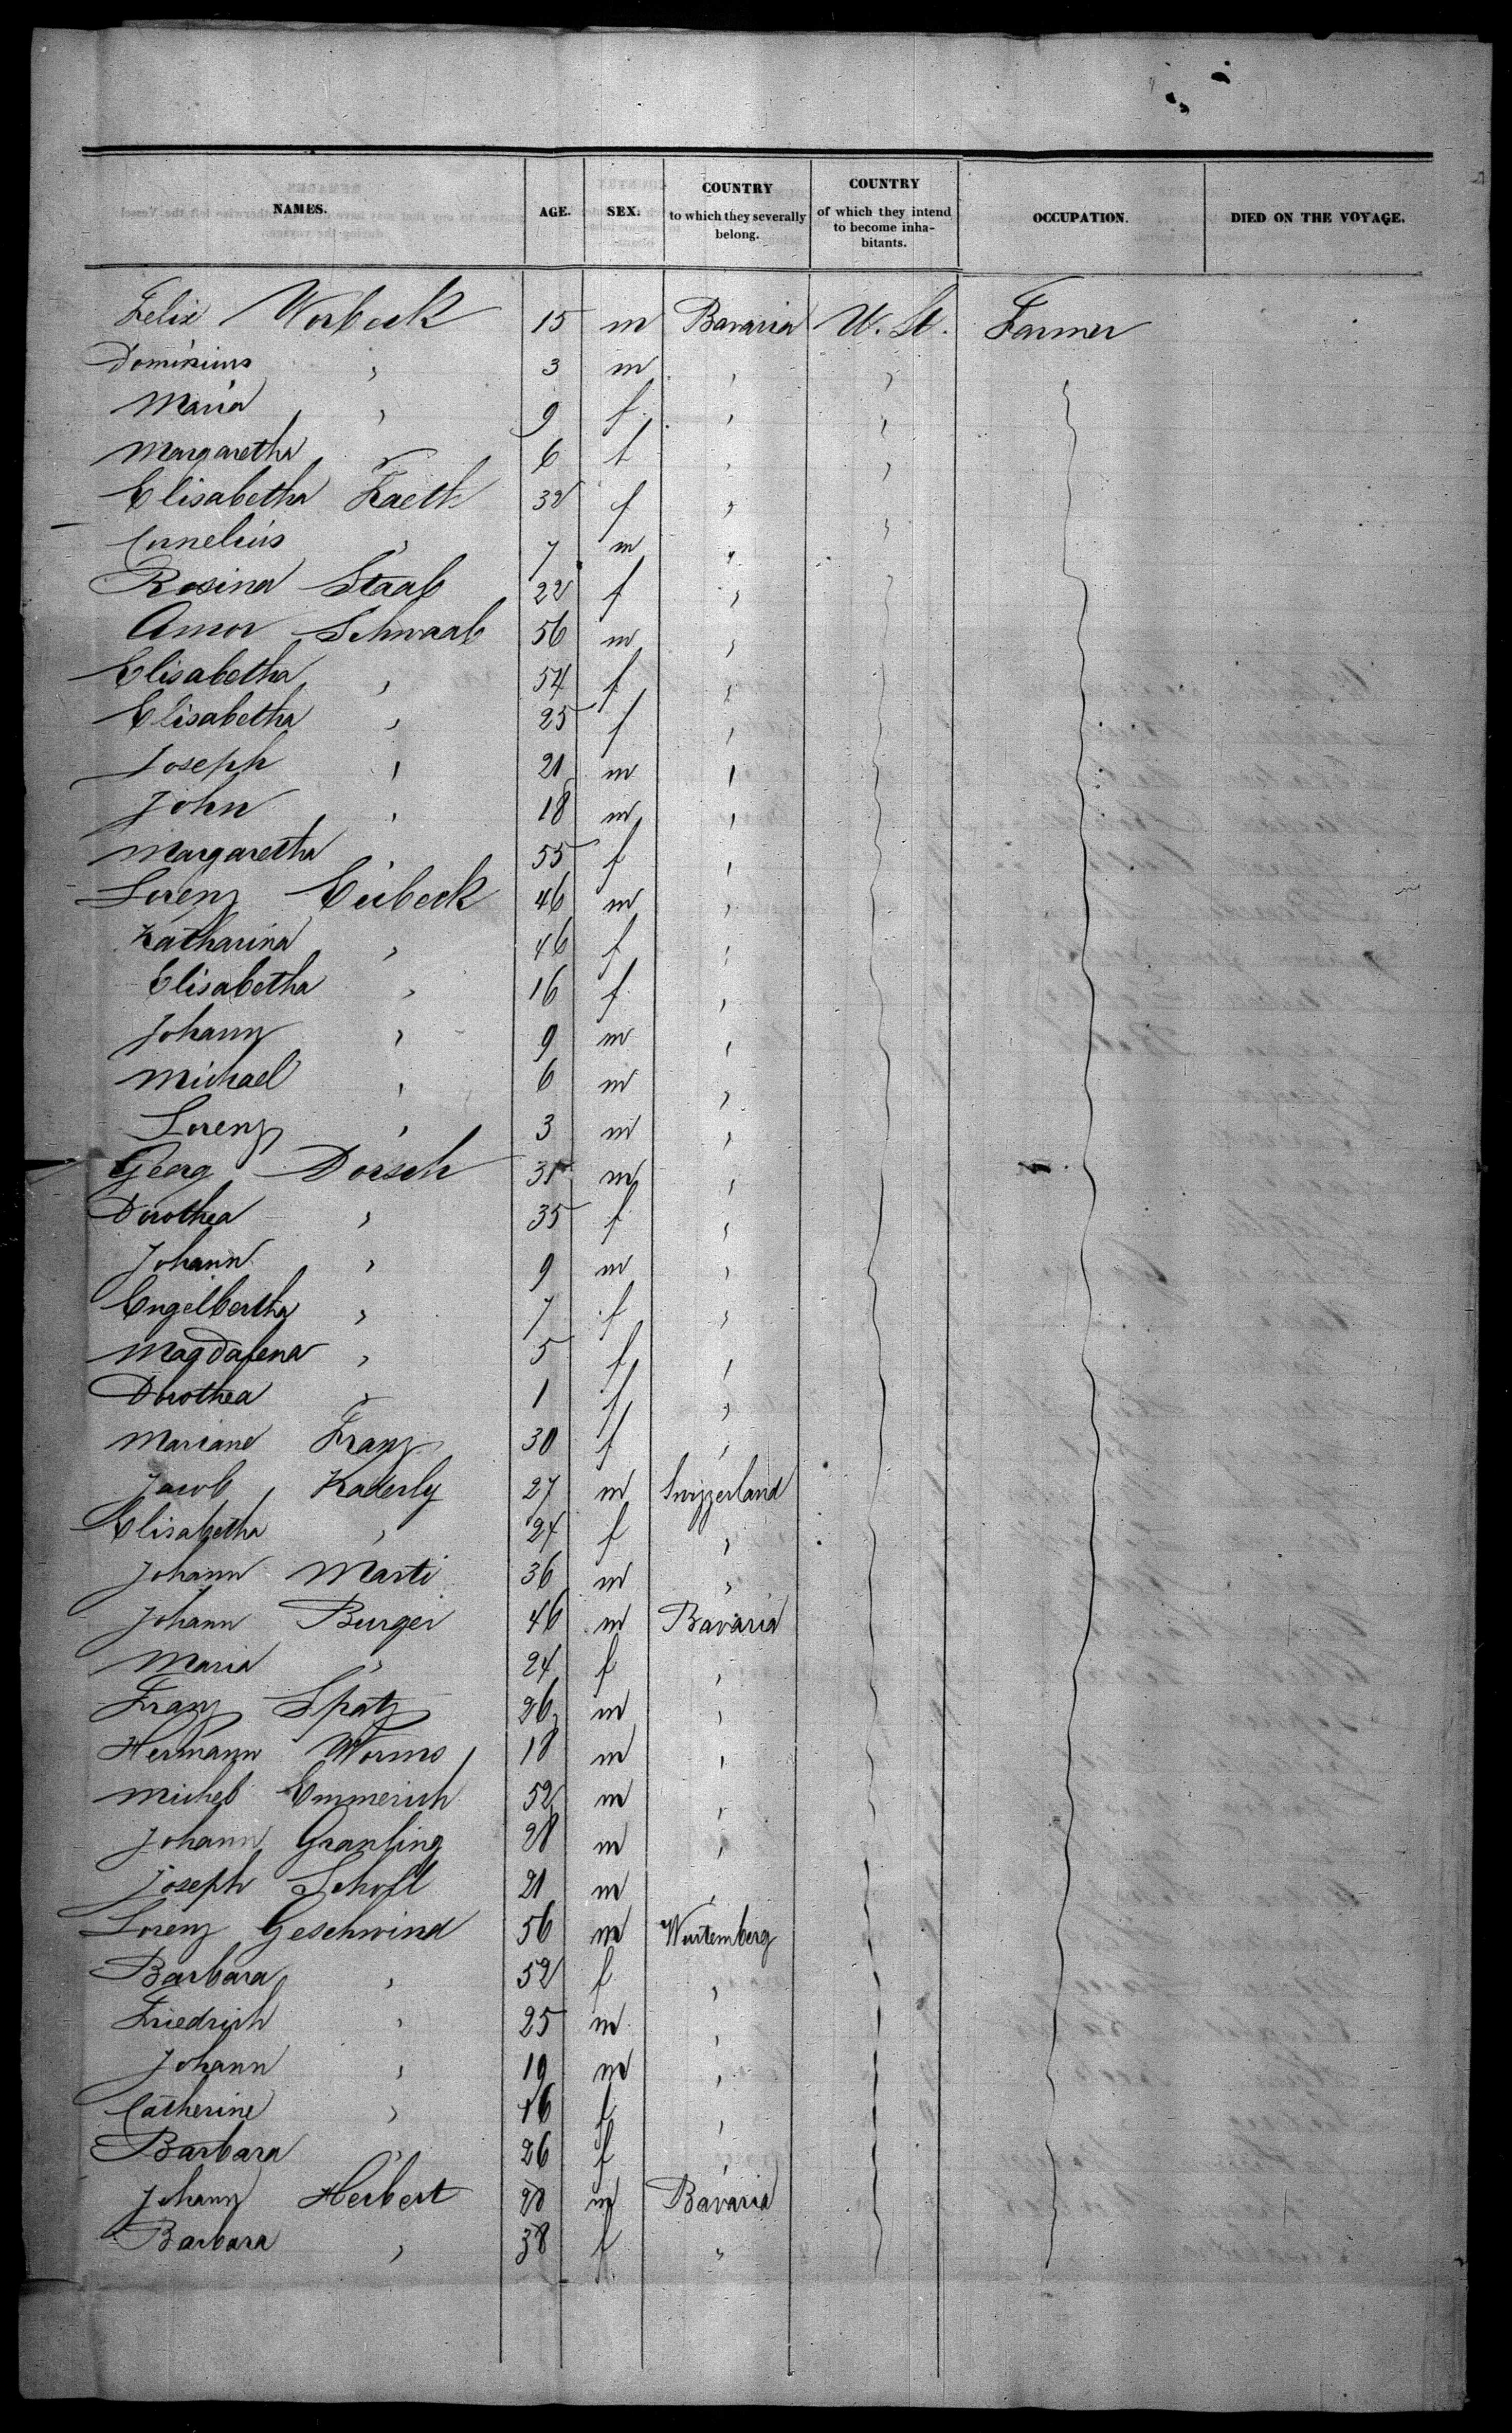 NAMES. AGE. SEX. COUNTRY to which they severally belong. COUNTRY of which they intend to become inhabitants. OCCUPATION. DIED ON THE VOYAGE.
Felix Worbeck 15 m Bavaria U. St. Farmer
Dominicus " 3 m " "
Maria " 9 f " "
Margaretha " 6 f " "
Elisabetha Kaeth 32 f " "
Cornelius " 7 m "
Rosina Staab 22 f "
Amor Schwaab 56 m "
Elisabetha " 54 f "
Elisabetha " 25 f "
Joseph " 21 m "
John " 18 m "
Margaretha " 55 f "
Lorenz Eübeck 46 m "
Katharina " 46 f "
Elisabetha " 16 f "
Johann " 9 m "
Michael " 6 m "
Lorenz " 3 m "
Georg Dorsch 31 m "
Dorothea " 35 f "
Johann " 9 m "
Engelbertha " 7 f "
Magdalena " 5 f "
Dorothea " 1 f "
Mariane Franz 30 f "
Jacob Kaderly 27 m Swizzerland
Elisabetha " 24 f "
Johann Marti 36 m "
Johann Burger 46 m Bavaria
Maria " 24 f "
Franz Spatz 26 m "
Hermann Worms 18 m "
Michel Emmerich 52 m "
Johann Granling 28 m "
Joseph Scholl 21 m "
Lorenz Geschwind 56 m Wurtemberg
Barbara " 52 f "
Friedrich " 25 m "
Johann " 19 m "
Catherine " 16 f "
Barbara " 26 f "
Johann Herbert 28 m Bavaria
Barbara " 38 f "